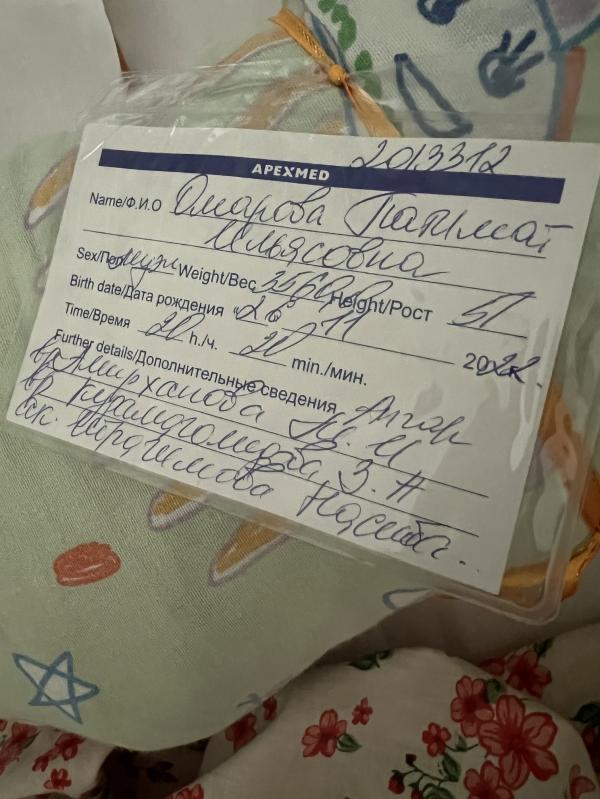 2013312
APEXMED
Name/Ф.И.О Омарова Патимат
Ильясовна
Sex/Пол муж Weight/Вес 3560 Height/Рост 51
Birth date/Дата рождения "26" 11 2022.
Time/Время 20 h./ч. 20 min./мин.
Further details/Дополнительные сведения Апгар
вр. Амирханова
вр З. А